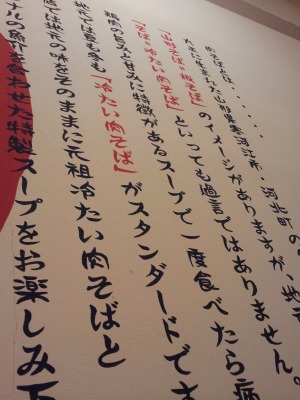 肉そばとは・・・・・
大正に生まれた山形県寒河江市、河北町の
「山形そば=板そば」のイメージがありますが、地元
「そば=冷たい肉そば」といっても過言ではありません。
鶏の旨みと甘みに特徴があるスープで一度食べたら病
地元では夏も冬も「冷たい肉そば」がスタンダードです
店では地元の味をそのままに元祖冷たい肉そばと
ナルの魚介を合わせた特製スープをお楽しみ下